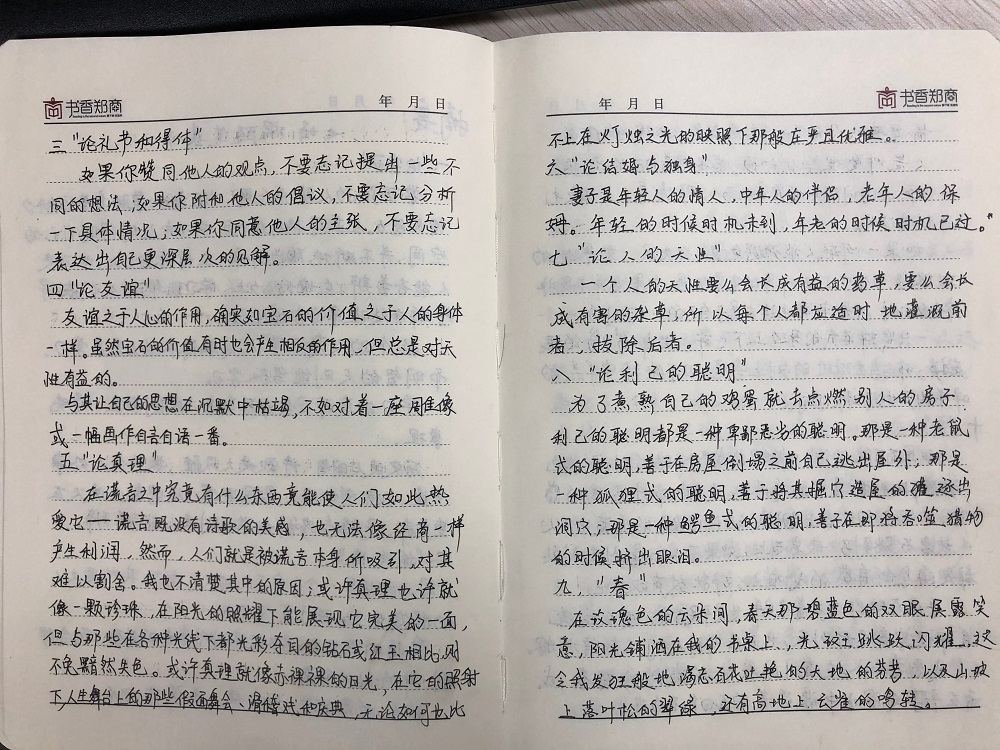 书香郑商
年 月 日
三 "论礼节和得体"
如果你赞同他人的观点，不要忘记提出一些不
同的想法，如果你附和他人的倡议，不要忘记分析
一下具体情况；如果你同意他人的主张，不要忘记
表达出自己更深层次的见解。
四 "论友谊"
友谊之于人心的作用，确实如宝石的价值之于人的身体
一样。虽然宝石的价值有时也会产生相反的作用，但总是对天
性有益的。
与其让自己的思想在沉默中枯竭，不如对着一座雕像
或一幅画作自言自语一番。
五 "论真理"
在谎言之中究竟有什么东西竟能使人们如此热
爱它——谎言既没有诗歌的美感，也无法像经商一样
产生利润，然而，人们就是被谎言本身所吸引，对其
难以割舍。我也不清楚其中的原因；或许真理也许就
像一颗珍珠，在阳光的照耀下能展现它完美的一面，
但与那些在各种光线下都光彩夺目的钻石或红玉相比，则
不免黯然失色。或许真理就像赤裸裸的日光，在它的照射
下人生舞台上的那些假面舞会、滑稽戏和庆典，无论如何也比
年 月 日
书香郑商
不上在灯烛之光的映照下那般庄严且优雅。
六 "论结婚与独身"
妻子是年轻人的情人，中年人的伴侣，老年人的保
姆。年轻的时候时机未到，年老的时候时机已过。"
七 "论人的天性"
一个人的天性要么会长成有益的药草，要么会长
成有害的杂草；所以每个人都应适时地灌溉前
者，拔除后者。
八 "论利己的聪明"
为了煮熟自己的鸡蛋就去点燃别人的房子
利己的聪明都是一种卑鄙恶劣的聪明。那是一种老鼠
式的聪明，善于在房屋倒塌之前自己逃出屋外；那是
一种狐狸式的聪明，善于将其掘穴造屋的獾逐出
洞穴；那是一种鳄鱼式的聪明，善在那将吞噬猎物
的时候挤出眼泪。
九，"春"
在玫瑰色的云朵间，春天那碧蓝色的双眼展露笑
意，阳光铺洒在我的书桌上，光斑跳跃，闪耀，这
令我发狂般地满怀百花吐艳的大地的芬芳，以及山坡
上落叶松的翠绿，还有高地上云雀的鸣啭。